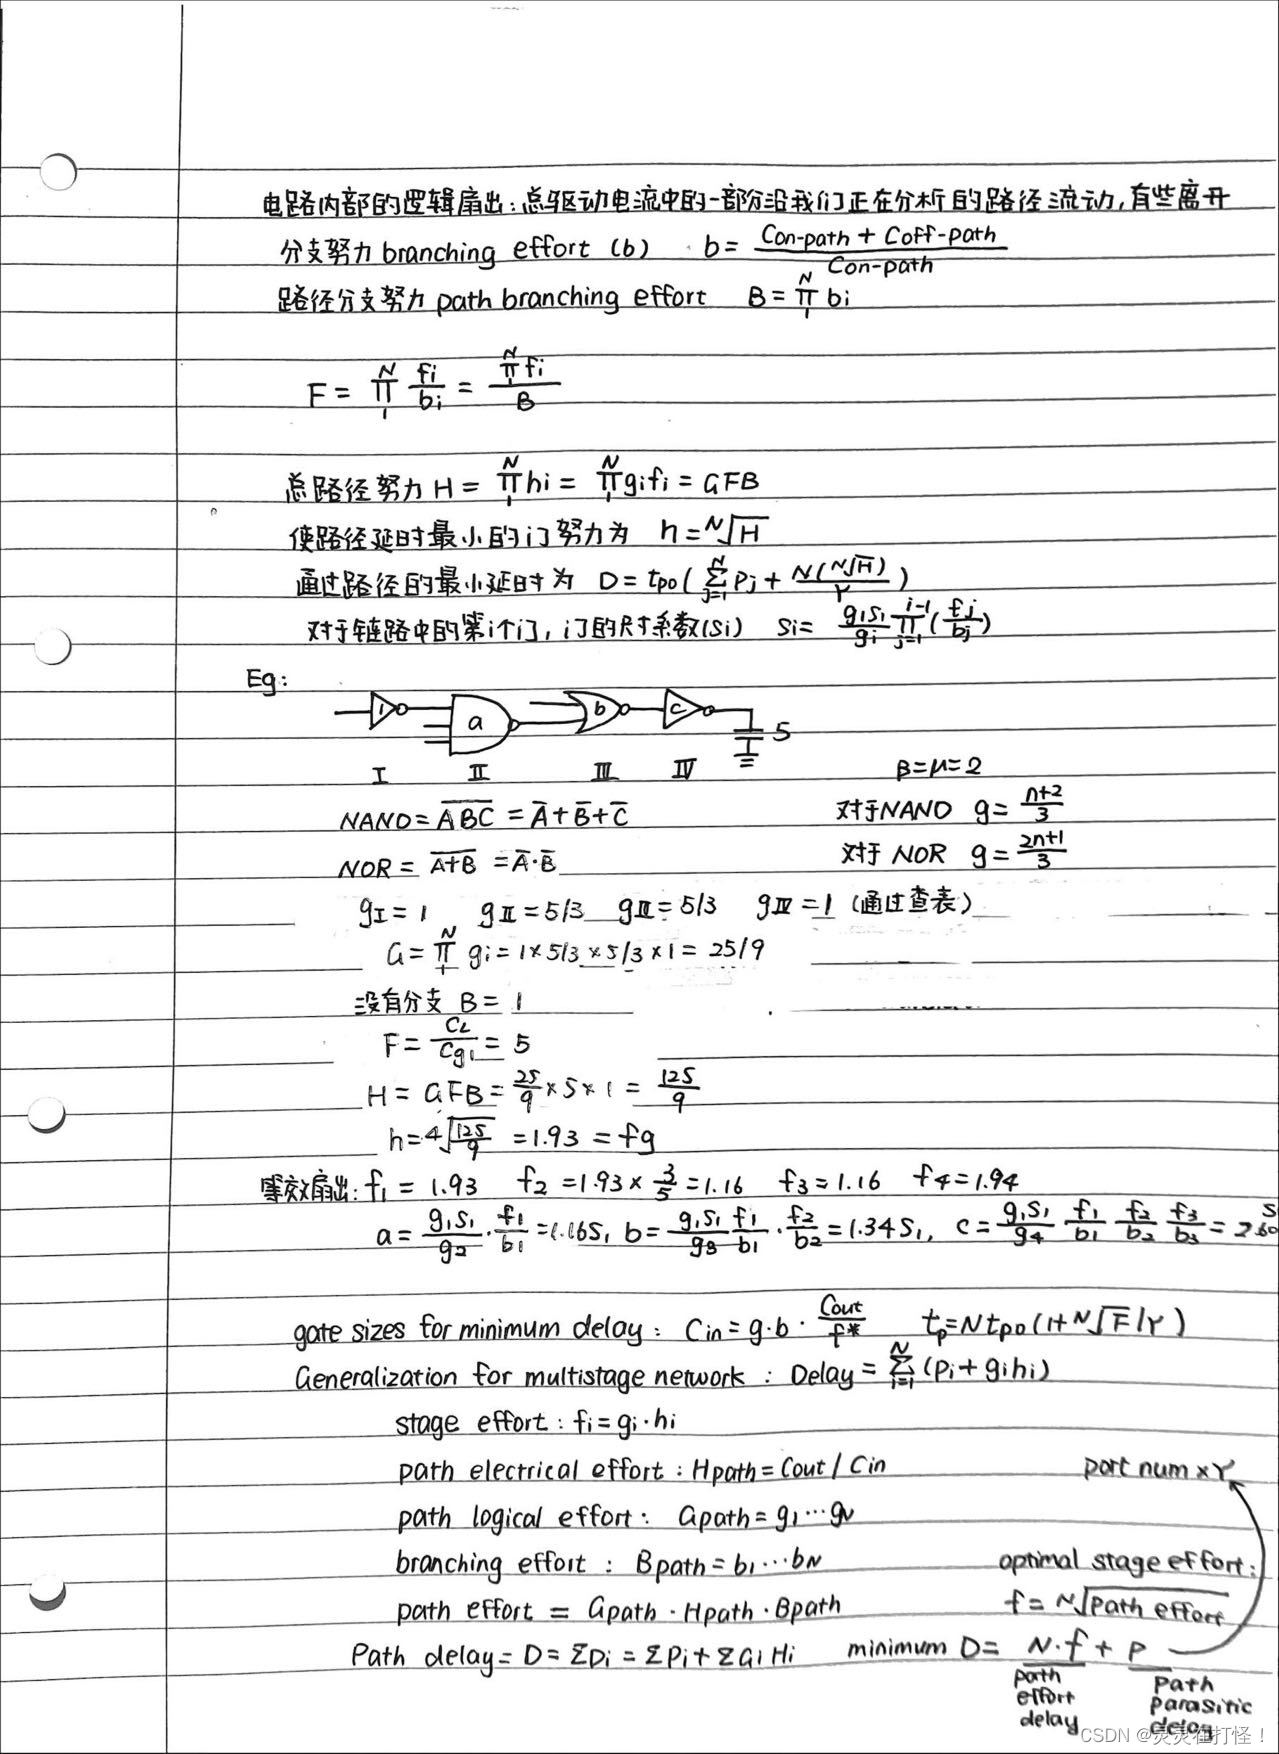 电路内部的逻辑扇出:总驱动电流中的一部份沿我们正在分析的路径流动,有些离开
分支努力 branching effort (b) b = (Con-path + Coff-path) / Con-path
路径分支努力 path branching effort B = ∏₁ᴺ bi
F = ∏₁ᴺ fi/bi = ∏₁ᴺ fi / B
总路径努力 H = ∏₁ᴺ hi = ∏₁ᴺ gifi = GFB
使路径延时最小的门努力为 h = ᴺ√H
通过路径的最小延时为 D = tpo ( Σⱼ₌₁ᴺ Pj + N(ᴺ√H)/γ )
对于链路中的第i个门,门的尺寸系数(Si) Si = g₁S₁/gi ∏ⱼ₌₁ⁱ⁻¹ (fj/bj)
Eg:
1 a b c 5
I II III IV β=μ=2
NAND = \overline{ABC} = A̅+B̅+C̅ 对于NAND g = (n+2)/3
NOR = \overline{A+B} = A̅·B̅ 对于 NOR g = (2n+1)/3
gI = 1 gII = 5/3 gIII = 5/3 gIV = 1 (通过查表)
G = ∏₁ᴺ gi = 1×5/3×5/3×1 = 25/9
没有分支 B = 1
F = CL/Cg1 = 5
H = GFB = 25/9 × 5 × 1 = 125/9
h = ⁴√(125/9) = 1.93 = fg
等效扇出: f₁ = 1.93 f₂ = 1.93 × 3/5 = 1.16 f₃ = 1.16 f₄ = 1.94
a = g₁S₁/g₂ · f₁/b₁ = 1.16S₁ b = g₁S₁/g₃ f₁/b₁ · f₂/b₂ = 1.34S₁, c = g₁S₁/g₄ f₁/b₁ f₂/b₂ f₃/b₃ =
gate sizes for minimum delay : Cin = g·b · Cout/f* tp = Ntpo(1+ᴺ√F/γ)
Generalization for multistage network : Delay = Σᵢ₌₁ᴺ (pi + gihi)
stage effort : fi = gi·hi
path electrical effort : Hpath = Cout / Cin port num × γ
path logical effort : Gpath = g₁···gN
branching effort : Bpath = b₁···bN optimal stage effort:
path effort = Gpath · Hpath · Bpath f = ᴺ√path effort
Path delay = D = ΣDi = ΣPi + ΣGiHi minimum D = N·f + P
path effort delay path parasitic delay
CSDN @灵灵在打怪!